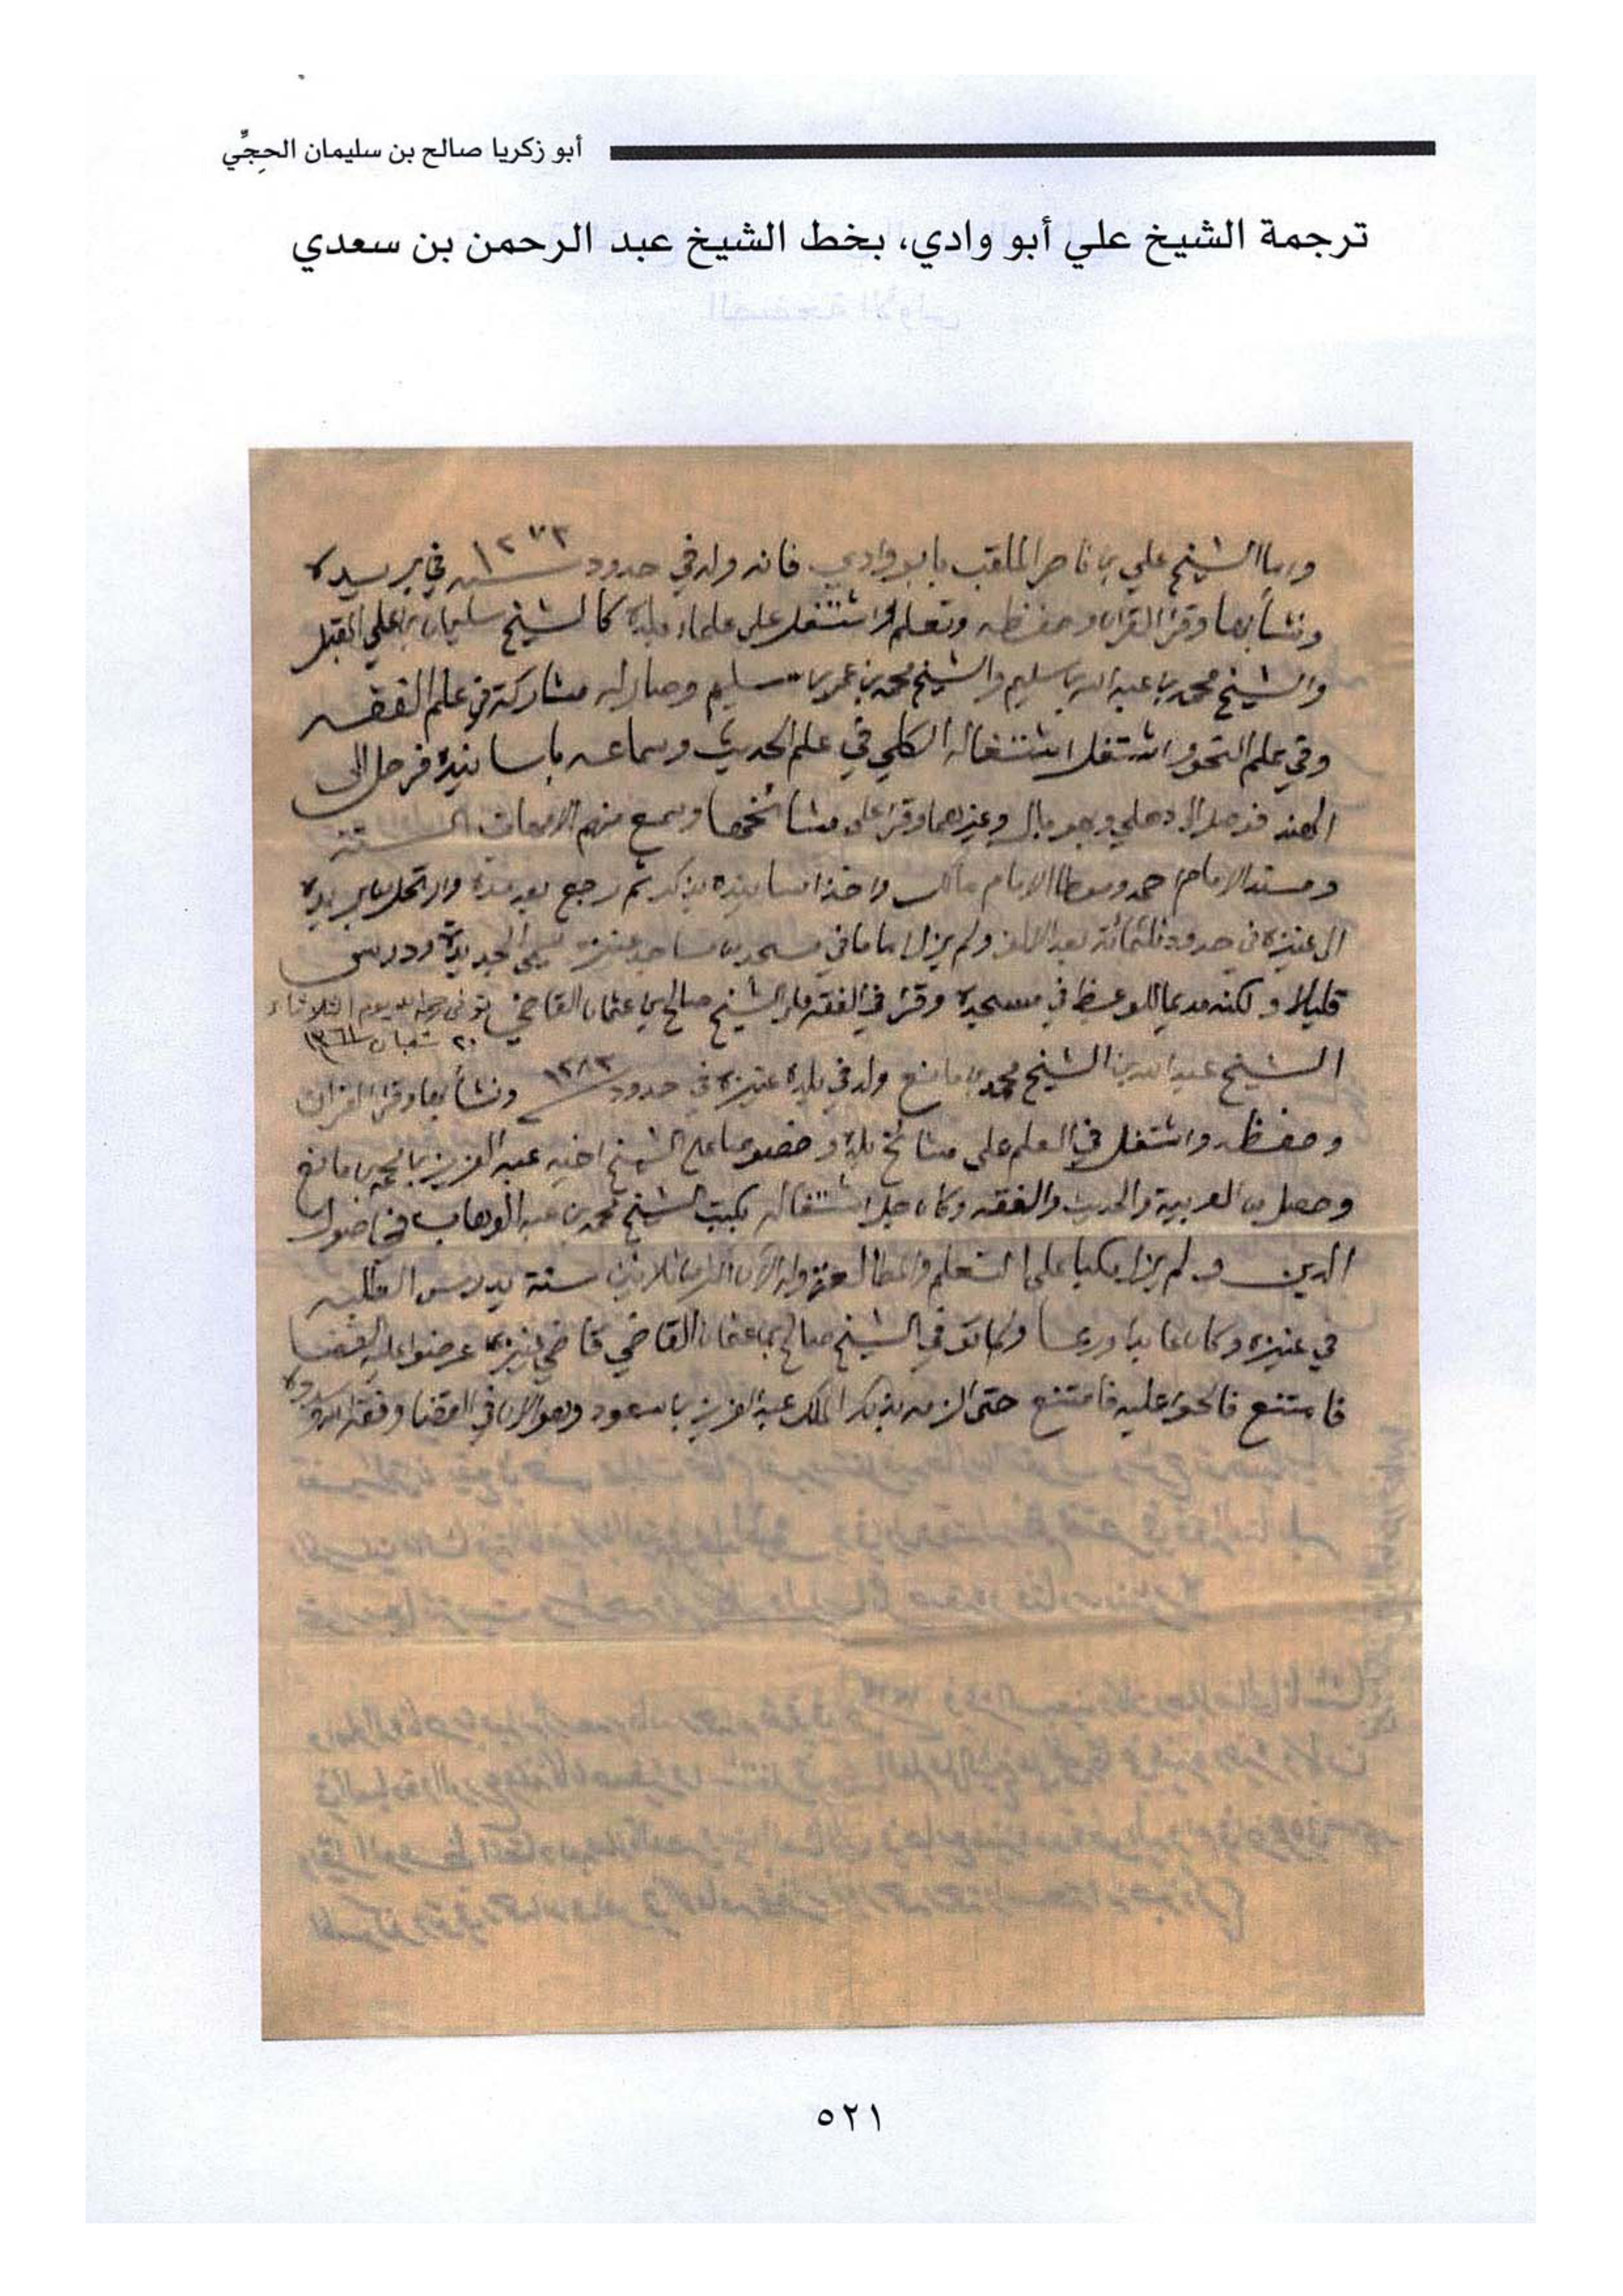 أبو زكريا صالح بن سليمان الحِجِّي
ترجمة الشيخ علي أبو وادي، بخط الشيخ عبد الرحمن بن سعدي
واما الشيخ علي بن ناصر الملقب بابو وادي فانه ولد في حدود سنه ١٢٧٣ في بريده
ونشأ بها وقرا القران وحفظه وتعلم واشتغل على علماء بلده كالشيخ سليمان بن علي المقبل
والشيخ محمد بن عبد الله بن سليم والشيخ محمد بن عمر بن سليم وصار له مشاركة في علم الفقه
وفي علم النحو واشتغل اشتغاله الكلي في علم الحديث وسماعه باسانيده فرحل الى
الهند فوصل الى دهلي وبهوبال وغيرهما وقرا على مشائخها وسمع منهم الامهات الستة
ومسند الامام احمد وموطا الامام مالك واخذ اسانيده بذلك ثم رجع بعد مدة وارتحل من بريده
الى عنيزه في حدود ثلثمائة بعد الالف ولم يزل اماما في مسجد من مساجد عنيزه يسمى الجديدة ودرس
قليلا ولكنه مديما للوعظ في مسجده وقرا في الفقه على الشيخ صالح بن عثمان القاضي توفي رحمه الله يوم الثلاثاء
٢٠ شعبان ١٣٦١
الشيخ عبد الله بن الشيخ محمد بن مانع ولد في بلده عنيزه في حدود ١٢٨٣ ونشأ بها وقرا القران
وحفظه واشتغل في العلم على مشائخ بلده وخصوصا على الشيخ اخيه عبد العزيز بن محمد بن مانع
وحصل من العربية والحديث والفقه وكان جل اشتغاله بكتب الشيخ محمد بن عبد الوهاب في اصول
الدين ولم يزل مكبا على التعلم والمطالعة وله الآن اكثر من ثلاثين سنة يدرس الطلبه
في عنيزه وكان عابدا ورعا ولما توفي الشيخ صالح بن عثمان القاضي قاضي عنيزه عرضوا عليه القضا
فامتنع فالحوا عليه فامتنع حتى الزمه بذلك الملك عبد العزيز بن سعود وهو الان في القضا وفقه الله وسدده
٥٢١